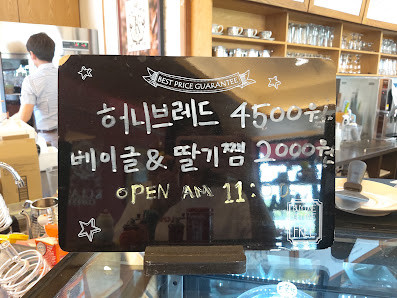 BEST PRICE GUARANTEE
허니브레드 4500원
베이글 & 딸기쨈 2000원
OPEN AM 11: